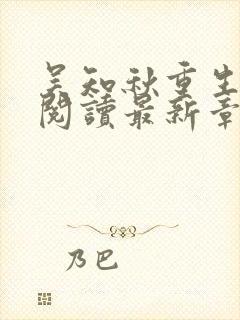 吴知秋重生
閱讀最新章
乃巴